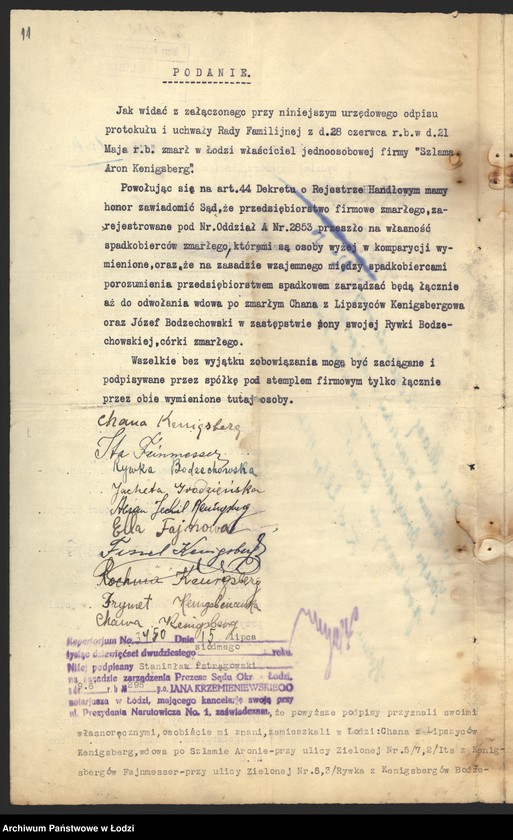 11
PODANIE.
Jak widać z załączonego przy niniejszym urzędowego odpisu
protokułu i uchwały Rady Familijnej z d.28 czerwca r.b.w d.21
Maja r.b. zmarł w Łodzi właściciel jednoosobowej firmy "Szlama
Aron Kenigsberg".
Powołując się na art.44 Dekretu o Rejestrze Handlowym mamy
honor zawiadomić Sąd,że przedsiębiorstwo firmowe zmarłego,za-
rejestrowane pod Nr.Oddział A Nr.2853 przeszło na własność
spadkobierców zmarłego,któremi są osoby wyżej w komparycji wy-
mienione,oraz,że na zasadzie wzajemnego między spadkobiercami
porozumienia przedsiębiorstwem spadkowem zarządzać będą łącznie
aż do odwołania wdowa po zmarłym Chana z Lipszyców Kenigsbergowa
oraz Józef Bodzechowski w zastępstwie żony swojej Rywki Bodze-
chowskiej,córki zmarłego.
Wszelkie bez wyjątku zobowiązania mogą być zaciągane i
podpisywane przez spółkę pod stemplem firmowym tylko łącznie
przez obie wymienione tutaj osoby.
Chana Kenigsberg
Ita Fainmesser
Rywka Bodzechowska
Jacheta Grodzieńska
Ella Fajnowa
Kenigsberg
Rochma Kenigsberg
Frymet Kenigsberżanka
Chawa Kenigsberg
Repertorjum No. 3450 Dnia 15 lipca
tysiąc dziewięćset dwudziestego siódmego roku.
Niżej podpisany Stanisław Pstrągowski
na zasadzie zarządzenia Prezesa Sądu Okr. Łodzi,
r. b. № 299 p.o. JANA KRZEMIENIEWSKIEGO
notarjusza w Łodzi, mającego kancelarję swoją przy
ul. Prezydenta Narutowicza No. 1, zaświadczam, że powyższe podpisy przyznali swoimi
własnoręcznymi,osobiście mi znani,zamieszkali w Łodzi:Chana z Lipszyców
Kenigsberg,wdowa po Szlamie Aronie-przy ulicy Zielonej Nr.5/7,2/Ita z Kenig-
sbergów Fajnmesser-przy ulicy Zielonej Nr.8,3/Rywka z Kenigsbergów Bodze-
Archiwum Państwowe w Łodzi